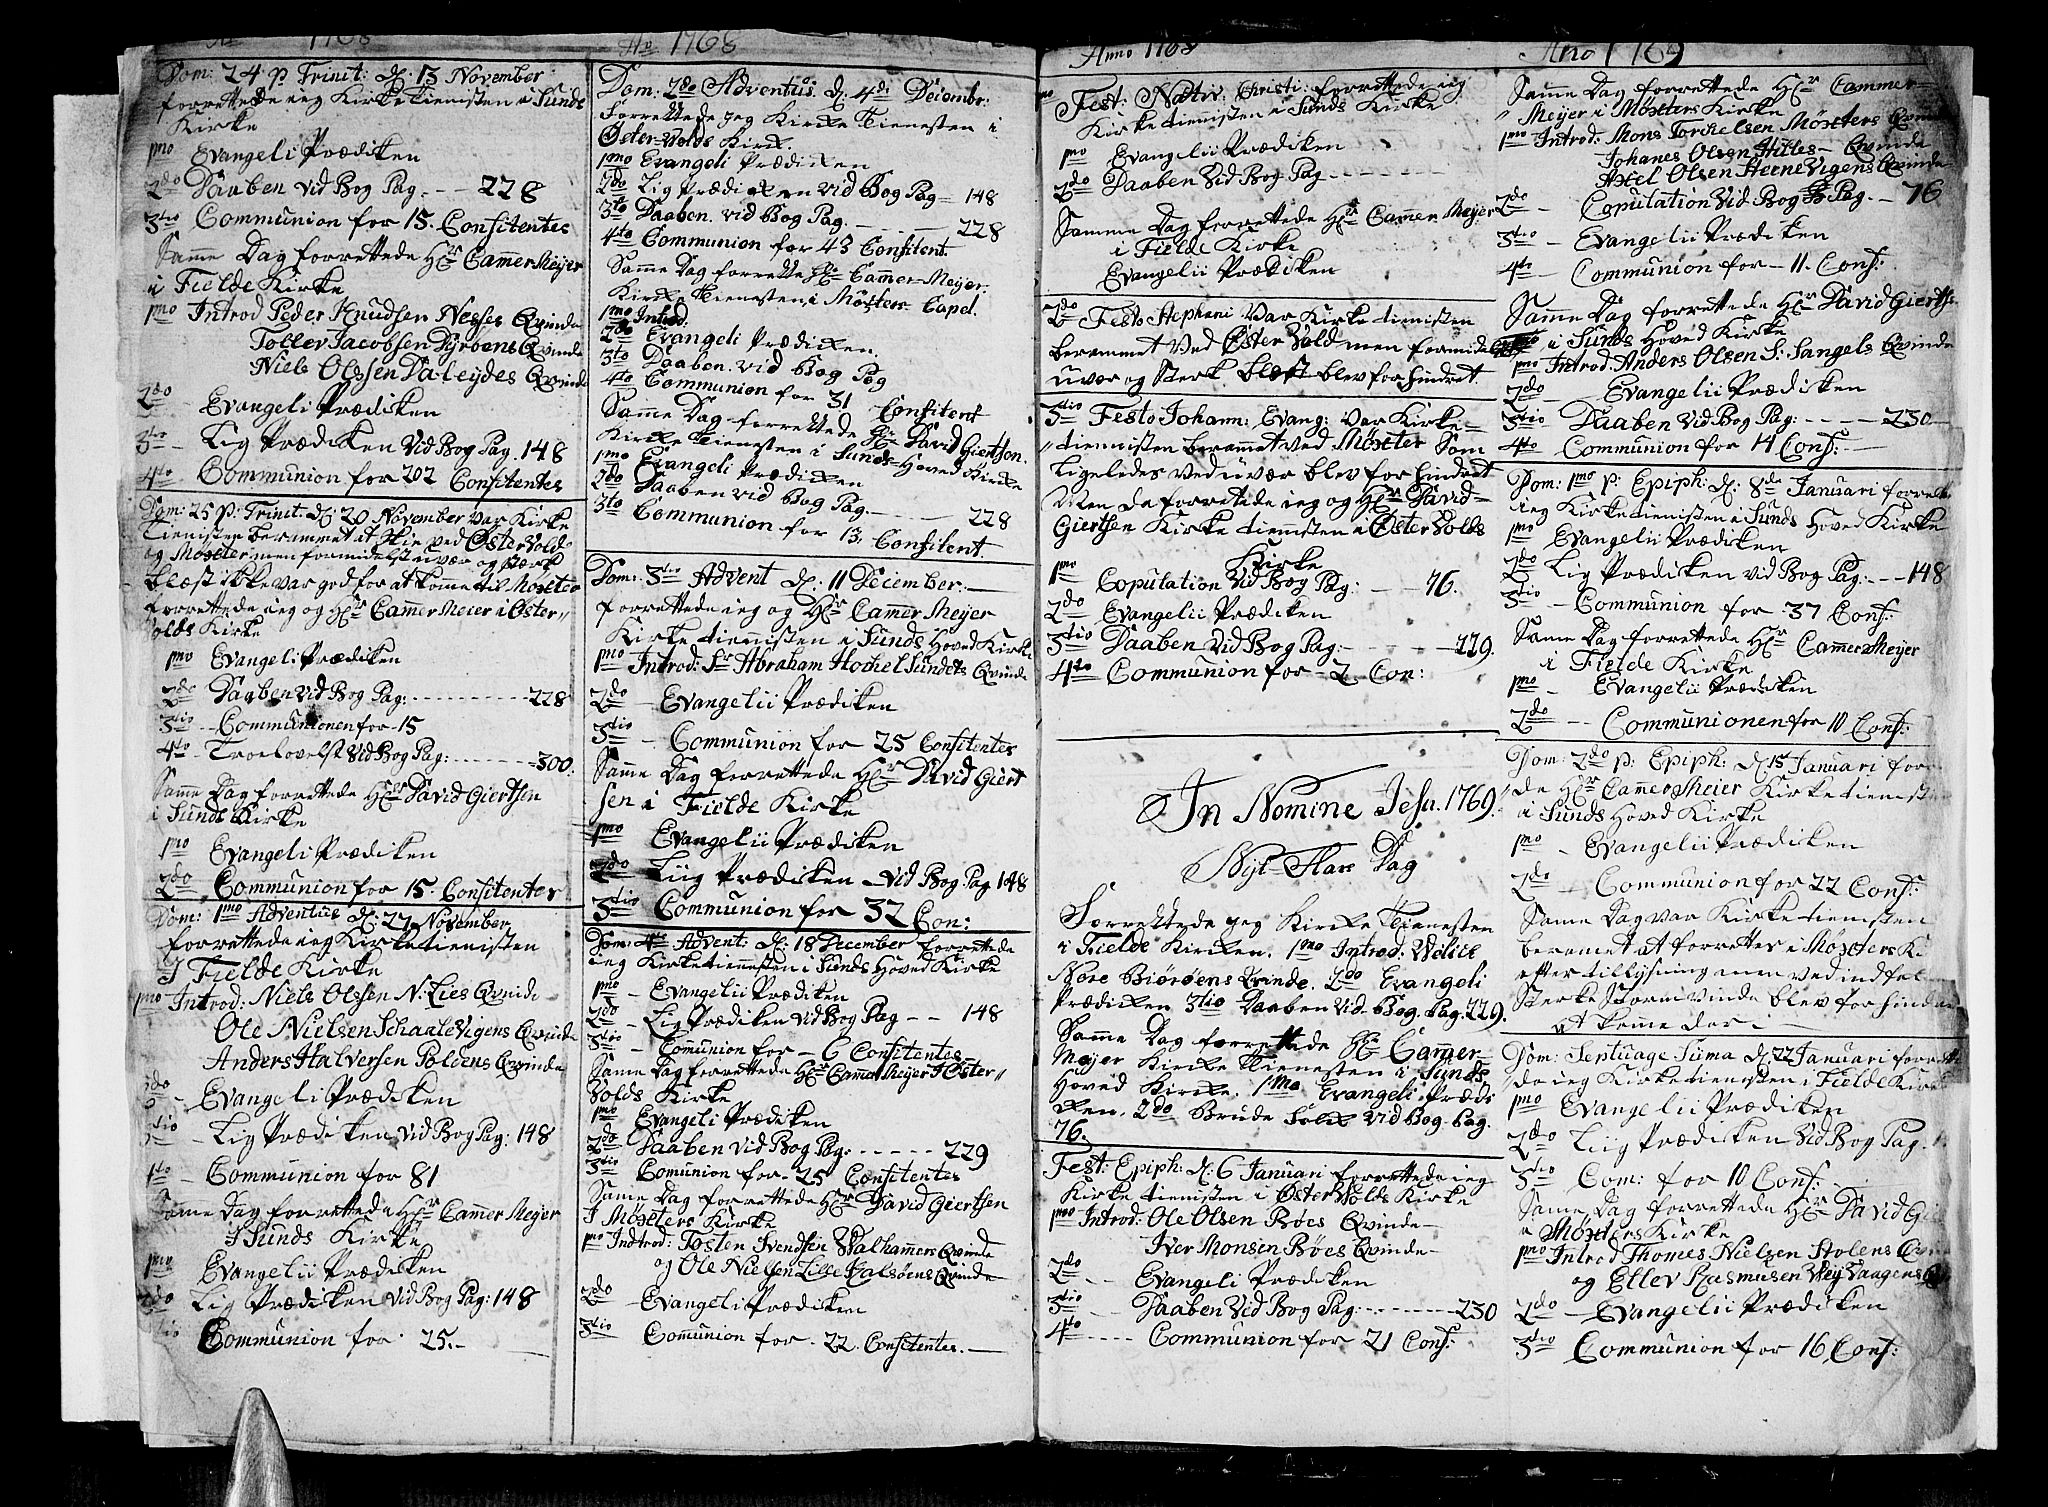 Ao 1768
Dom: 24 p Trinit: d: 13 November
forrettede ieg Kirketienisten i Sunds
Kirke
1mo Evangeli Prædiken
2do Daaben vid Bog Pag. - - 228
3tio Communion for 15. Confitentes
Samme Dag forrettede Hr Camer Meijer
i Fielde Kirke
1mo Introd Peder Knudsen Neeses Qvinde
Toller Jacobsen Dyrøens Qvinde
Niels Olssen Daleydes Qvinde
2do - Evangeli Prædiken
3tio - Lig Prædiken vid Bog Pag. 148
4to - Communion for 202 Confitentes
Dom: 25 p: Trinit: d: 20 November var Kirke
Tienisten berammet at skie ved Østervold
og Møster men formidelst uvær og sterk
blæst ikke var god for at komme til Møster
forrettede ieg og Hr Cammer Meier i Øster-
volds Kirke
1mo Evangeli Prædiken
2do Daaben vid Bog Pag: - - - 228
3tio - Communionen for 15
4to - Troelovelse vid Bog Pag: - - - 300.
Samme Dag forrettede Hr David Giertsen
i Sunds Kirke
1mo Evangeli Prædiken
2do Communion for 15. Confitenter
Dom: 1mo Adventus d: 27 November
forrettede ieg Kirketienisten
I Fielde Kirke
1mo Introd: Niels Olssen N: Lies Qvinde
Ole Nielsen Schaale Vigens Qvinde
Anders Halversen Poldens Qvinde
2do - Evangeli Prædiken
3tio - Lig Prædiken vid Bog Pag: 148
4to - Communion for 81
Samme Dag forrettede Hr Cammer Meyer
I Sunds Kirke
1mo Evangelii Prædiken
2do Lig Prædiken vid Bog Pag: 148
3tio Communion for 25.-
Ao 1768
Dom: 2do Adventus d: 4de Decembr:
Forrettede jeg Kirke Tienesten i
Øster-Volds Kirk.
1mo Evangeli Prædiken
2do Lig Prædiken vid Bog Pag - 148
3tio Daaben vid Bog Pag. - - - 228
4to Communion for 43 Confitent.
Samme Dag forrette Hr Cammer-Meyer.
Kirke Tienesten i Møster Capel.
1mo Introd.
2do Evangeli Prædiken.
3tio Daaben vid Bog Pag
4to Communion for 31 Confitent
Samme Dag forrettede Hr David Giertson.
Kirke Tienesten i Sunds Hoved Kirke
1mo Evangeli Prædiken
2do Daaben vid Bog Pag - - - 228
3tio Communion for 13 Confitent
Dom: 3tio Advent d: 11 December:
forrettede ieg og Hr Camer Meyer
Kirke tiennisten i Sunds Hoved Kirke
1mo Introd: Sr Abraham Hochel Sundets Qvinde
2do - Evangelii Prædiken
3tio - Communion for 25 Confitentes
Samme Dag forrettede Hr David Giert
sen i Fielde Kirke
1mo Evangelii Prædiken
2do Liig Prædiken vid Bog Pag 148
3tio Communion for 32 Con:
Dom: 4to Advent: d: 18 December forrettede
ieg Kirketiennesten i Sunds Hoved Kirke
1mo - Evangelii Prædiken
2do - Lig Prædiken vid Bog Pag - - 148
3tio - Comunion for - 6 Confitentes
Same Dag forrettede Hr Camer Meyer I Øster-
Volds Kirke
1mo Evangeli Prædiken
2do - Daaben vid Bog Pag: - - - 229
3tio - Comunion for - 25 Confitentes
Same Dag forrettede Hr David Giertsen
I Møsters Kirke
1mo Indtrod: Tosten Svendsen Walhammers Qvinde
og Ole Nielsen Lille Kalsøens Qvinde
2do - Evangeli Prædiken
3tio - Comunion for - 22 Confitentes.
Anno 1768
Fest: Nativ: Christi: forrettede ieg
Kirketienisten i Sunds Kirke
1mo Evangelii Prædiken
2do Daaben vid Bog Pag - - -
Samme Dag forrettede Hr Cammer Meyer
i Fielde Kirke
Evangelii Prædiken
2do Festo Stepheni var Kirke tienisten
berammet ved Øster Vold men formidelst
uvær og sterk blæst blev forhindret
3tio Festo Johann: Evang: var Kirke-
tiennisten berammet ved Møster Som
ligeledes ved uvær blev forhindret
Men da forrettede ieg og Hr David-
Giertsen Kirke tiennisten i Øster Volds
Kirke
1mo Copulation vid Bog Pag: - - 76.
2do - Evangelii Prædiken
3tio Daaben vid Bog Pag: - - - 229.
4to Communion for - 2 Con:
In Nomine Jesu. 1769.
Nyt-Aars Dag
Forrettede jeg Kirke Tienesten
i Fielde Kirken. 1mo Introd:
Nøre Biørøens Qvinde. 2do Evangeli
Prædiken 3tio Daaben vid Bog. Pag. 229.
Samme Dag forrettede Hr Cammer-
Meyer Kirke Tienesten i Sunds
Hoved Kirke. 1mo. Evangeli Prædi
ken. 2do Brude Folk vid Bog. Pag.
76.
Fest: Epiph: d: 6 Januari forrettede ieg
Kirke tienisten i Øster Volds Kirke
1mo Introd: Ole Olsen Røes Qvinde-
Iver Monsen Røes Qvinde-
2do - - Evangeli Prædiken
3tio - - Daaben vid Bog Pag: - - - 230
4to - - - Communion for 21 Conf:
Ano 1769
Samme Dag forrettede Hr Cammer-
Meijer i Møsters Kirke
1mo Introd: Mons Torchelsen Møsters Qvinde
Johanes Olsen Hilles - Qvinde
Axel Olsen Herne Vigens Qvinde
2do - Copulation vid Bog Pag. - 76
3tio - Evangelii Prædiken
4to - Communion for - 11. Conf:
Samme Dag forrettede Hr David Gierts
i Sunds Hoved Kirke
1mo Introd: Anders Olsen S: Sangels Qvinde
2do - Evangelii Prædiken
3tio Daaben vid Bog Pag: - - - 230
4to Communion for 14 Conf:
Dom: 1mo p: Epiph: d: 8de Januari forrette
ieg Kirketienisten i Sunds Hoved Kirke
1mo Evangelii Prædiken
2do Lig Prædiken vid Bog Pag: - - 148
3tio - Communion for 37 Conf:
Same Dag forrettede Hr Camer Meyer
i Fielde Kirke
1mo - Evangelii Prædiken
2do - - Communionen for 10 Conf:
Dom: 2do p: Epiph: d 15 Januari forre
de Hr Camer Meier Kirketienist
i Sunds Hoved Kirke
1mo - Evangelii Prædiken
2do - Communion for 22 Conf:
Same Dag var Kirke tienisten
beramet at forrettes i Møsters K
efter tillysning men ved indfal
Sterke Stormvinde blev forhindre
at komme der i
Dom: Septuage Suma d 22 Januari forrett
de ieg Kirketienesten i Fielde Kirke
1mo Evangelii Prædiken
2do Liig Prædiken vid Bog Pag.
3tio Com: for 10 Conf:
Same Dag forrettede Hr David Gie
i Møsters Kirke
1mo Introd Thomes Nielsen Stolens Qvin
og Ellev Rasmusen Vey Vaagens Q
2do - Evangelii Prædiken
3tio Communion for 16 Conf: